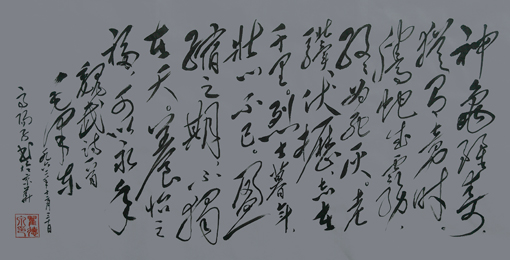 神龜雖壽，
猶有竟時。
騰蛇乘霧，
終為死灰。老
驥伏櫪，志在
千里。烈士暮年，
壯心不已。盈
縮之期，不獨
在天。養怡之
福，可以永年。
魏武詩一首
毛澤東